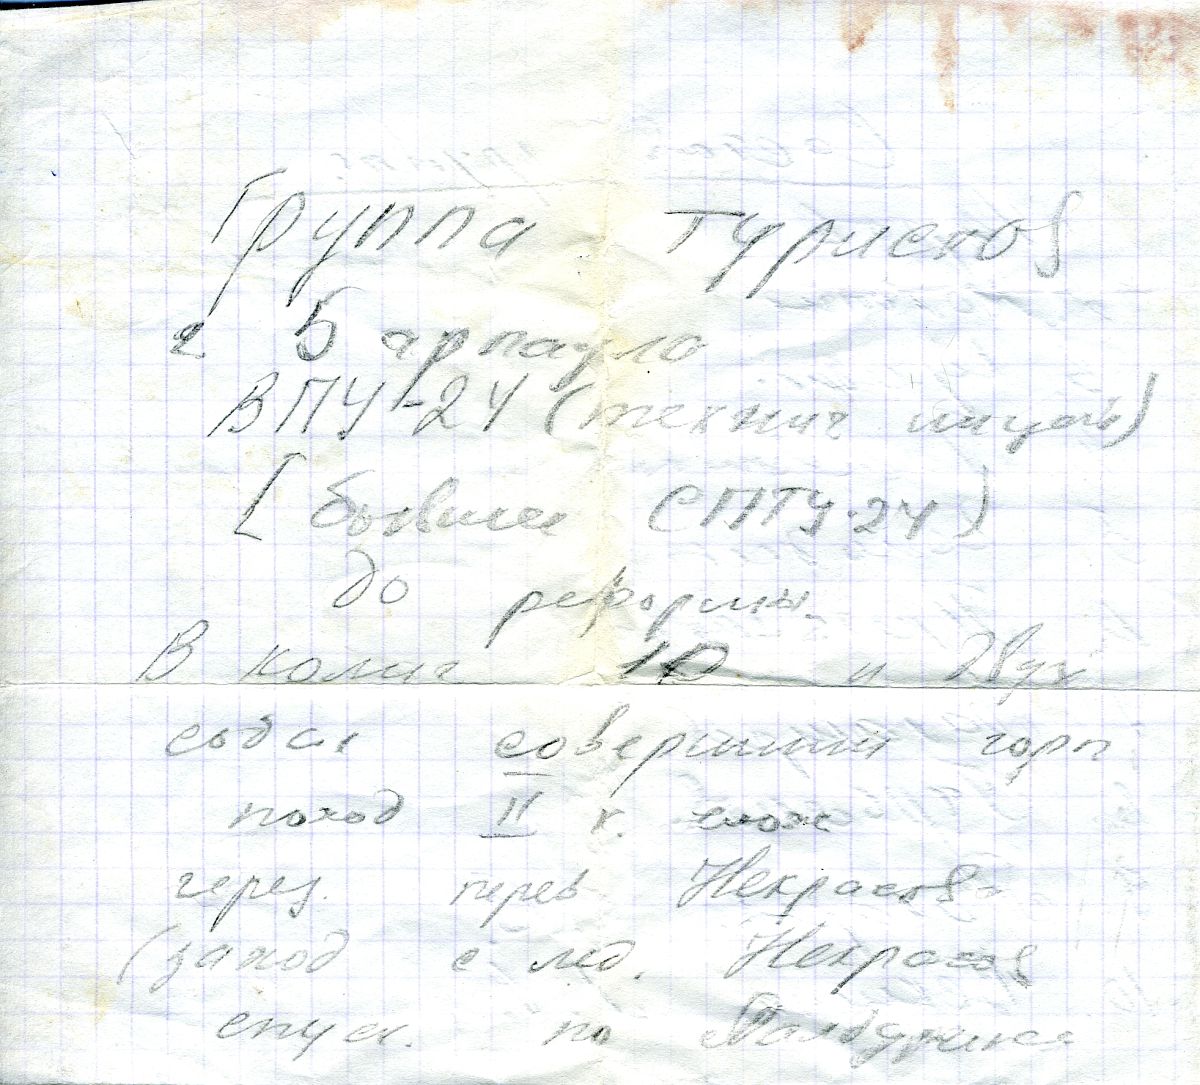 Группа туристов
г Барнаула
ВПУ-24 (технич лицей)
[бывшее СПТУ-24)
до реформы.
В колич 10 и двух
собак совершили горн
поход II к. слож
через. перев Некрасова
(заход с лед. Некрасов
спуск. по